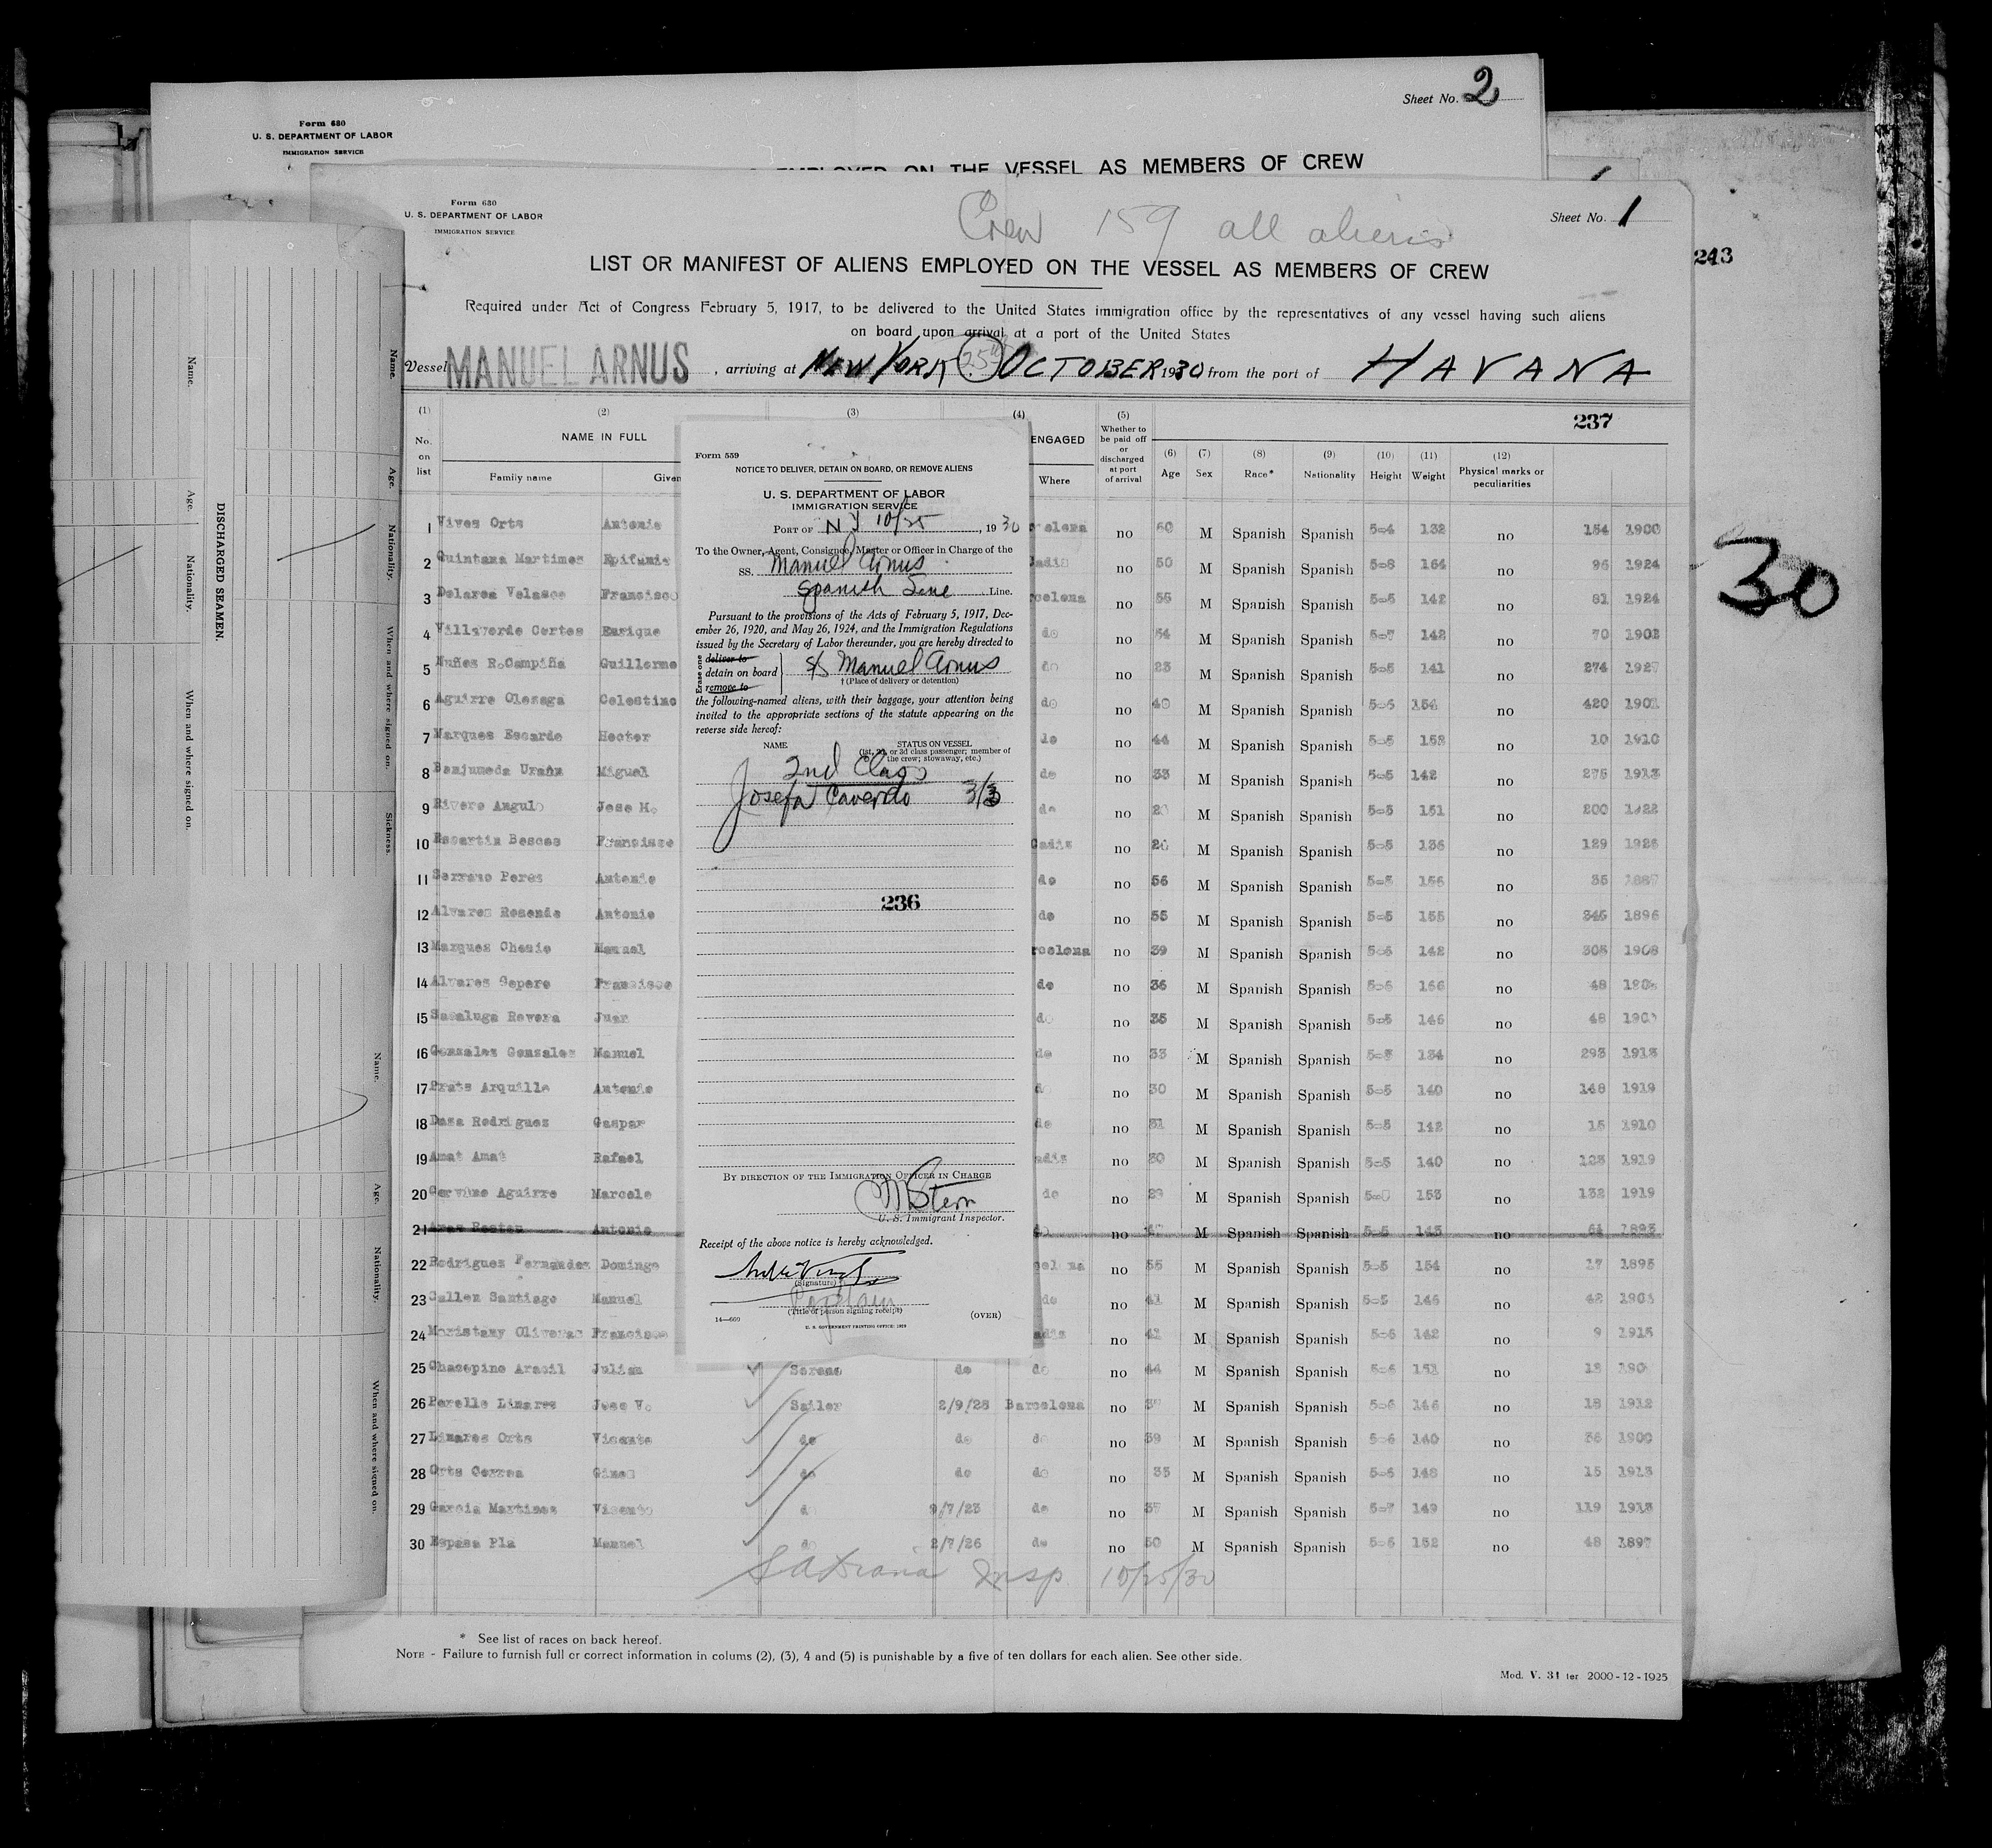 Sheet No. 2
Form 680
U. S. DEPARTMENT OF LABOR
IMMIGRATION SERVICE
EMPLOYED ON THE VESSEL AS MEMBERS OF CREW
Form 630
U. S. DEPARTMENT OF LABOR
IMMIGRATION SERVICE
Crew 159 all aliens
Sheet No. 1
243
LIST OR MANIFEST OF ALIENS EMPLOYED ON THE VESSEL AS MEMBERS OF CREW
Required under Act of Congress February 5, 1917, to be delivered to the United States immigration office by the representatives of any vessel having such aliens
on board upon arrival at a port of the United States
Vessel MANUEL ARNUS, arriving at NEW YORK 25th OCTOBER 1930 from the port of HAVANA
237
30
(1) (2) (3) (4) (5) (6) (7) (8) (9) (10) (11) (12)
No. on list
NAME IN FULL
Family name Given
ENGAGED
Where
Whether to be paid off or discharged at port of arrival
Age Sex Race* Nationality Height Weight Physical marks or peculiarities
1 Vives Orts Antonio no 60 M Spanish Spanish 5-4 132 no 154 1900
2 Quintana Martinez Epifanio no 50 M Spanish Spanish 5-8 164 no 96 1924
3 Velasco Francisco no 55 M Spanish Spanish 5-5 142 no 81 1924
4 Villaverde Cortes Enrique do no 54 M Spanish Spanish 5-7 142 no 70
5 Nuñez R.Campiña Guillermo do no 23 M Spanish Spanish 5-5 141 no 274 1927
6 Aguirre Celestino do no 40 M Spanish Spanish 5-6 154 no 420
7 Marques Hector do no 44 M Spanish Spanish 5-5 no 10 1910
8 Benjumeda Miguel do no 33 M Spanish Spanish 5-5 142 no 275 1913
9 Rivero Angulo Jose M. do no M Spanish Spanish 5-5 151 no 200
10 Francisco Cadiz no M Spanish Spanish 5-5 136 no 129
11 Serrano Perez Antonio do no 56 M Spanish Spanish 5-5 156 no 35
12 Alvarez Antonio do no 55 M Spanish Spanish 5-5 155 no 345 1896
13 Marquez Manuel no 39 M Spanish Spanish 5-6 142 no 305 1908
14 Alvarez Francisco do no 36 M Spanish Spanish 5-6 166 no 48
15 Sacaluga Juan do no 35 M Spanish Spanish 5-5 146 no 48
16 Gonzalez Gonzalez Manuel do no 33 M Spanish Spanish 134 no 293 1913
17 Prats Arquilla Antonio no 30 M Spanish Spanish 5-5 140 no 148 1919
18 Daza Rodriguez Gaspar do no 31 M Spanish Spanish 5-5 142 no 15 1910
19 Amat Amat Rafael no 30 M Spanish Spanish 5-5 140 no 1919
20 Aguirre Marcelo do no 29 M Spanish Spanish 153 no 132 1919
21 Antonio no M Spanish Spanish 5-5 143 no 61 1893
22 Rodriguez Fernandez Domingo no 55 M Spanish Spanish 5-5 154 no 17 1895
23 Santiago Manuel do no 41 M Spanish Spanish 5-5 146 no 42
24 Maristany Francisco no 41 M Spanish Spanish 5-6 142 no 9 1915
25 Aracil Julian Sereno do do no 44 M Spanish Spanish 5-6 151 no
26 Linares Jose V. Sailor 2/9/28 Barcelona no M Spanish Spanish 5-6 146 no 18 1912
27 Linares Orts Vicente do do do no 39 M Spanish Spanish 5-6 140 no 1900
28 Orts Gines do do do no 35 M Spanish Spanish 5-6 148 no 15 1913
29 Garcia Martinez Vicente 9/7/23 do no 37 M Spanish Spanish 5-7 149 no 119
30 Espasa Pla Manuel 2/7/26 do no 50 M Spanish Spanish 5-6 152 no 48 1897
Insp 10/25/30
* See list of races on back hereof.
NOTE - Failure to furnish full or correct information in colums (2), (3), 4 and (5) is punishable by a five of ten dollars for each alien. See other side.
Mod. V. 31 ter 2000-12-1925
Form 559
NOTICE TO DELIVER, DETAIN ON BOARD, OR REMOVE ALIENS
U. S. DEPARTMENT OF LABOR
IMMIGRATION SERVICE
PORT OF N Y 10/25, 1930
To the Owner, Agent, Consignee, Master or Officer in Charge of the
SS. Manuel Arnus
Spanish Line Line.
Pursuant to the provisions of the Acts of February 5, 1917, Dec-
ember 26, 1920, and May 26, 1924, and the Immigration Regulations
issued by the Secretary of Labor thereunder, you are hereby directed to
Erase one
deliver to
detain on board
remove to
SS Manuel Arnus
† (Place of delivery or detention)
the following-named aliens, with their baggage, your attention being
invited to the appropriate sections of the statute appearing on the
reverse side hereof:
NAME STATUS ON VESSEL
(1st, 2d, or 3d class passenger; member of
the crew; stowaway, etc.)
2nd Class
Josefa Caverdo 3/3
236
BY DIRECTION OF THE IMMIGRATION OFFICER IN CHARGE
Stern
U. S. Immigrant Inspector.
Receipt of the above notice is hereby acknowledged.
(Signature)
Captain
(Title of person signing receipt)
14—600
(OVER)
U. S. GOVERNMENT PRINTING OFFICE: 1929
DISCHARGED SEAMEN.
Name. Age. Nationality. When and where signed on.
Name. Age. Nationality. When and where signed on. Sickness.
Name. Age. Nationality. When and where signed on.